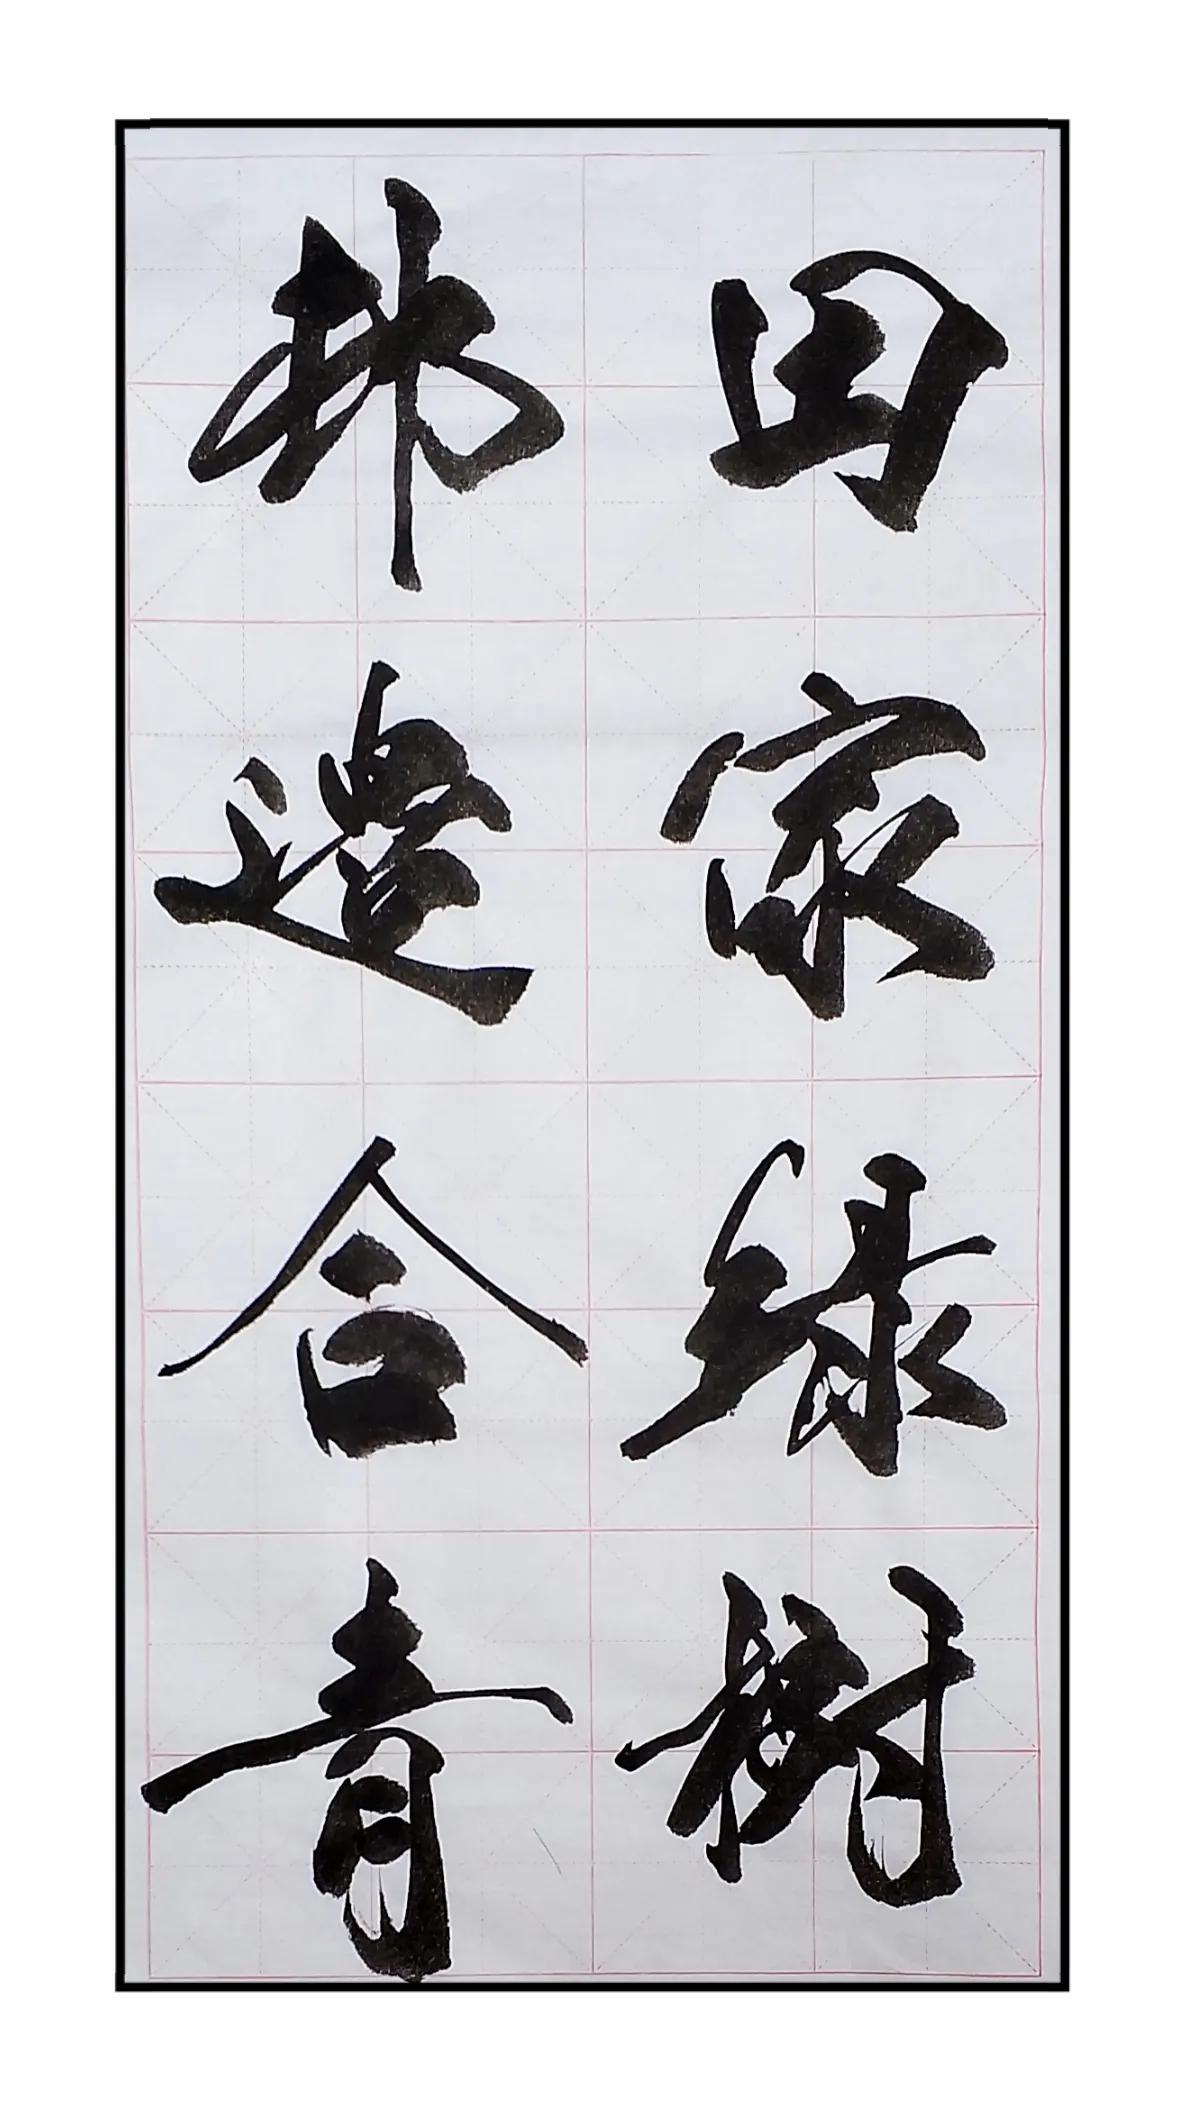 田家綠樹
邨邊合青